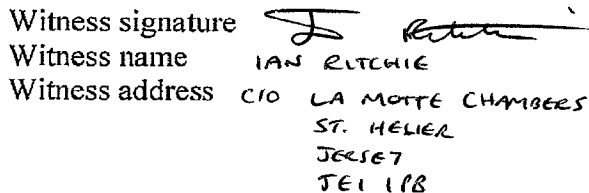 Witness signature
Witness name IAN RITCHIE
Witness address C/O LA MOTTE CHAMBERS
ST. HELIER
JERSEY
JE1 1PB